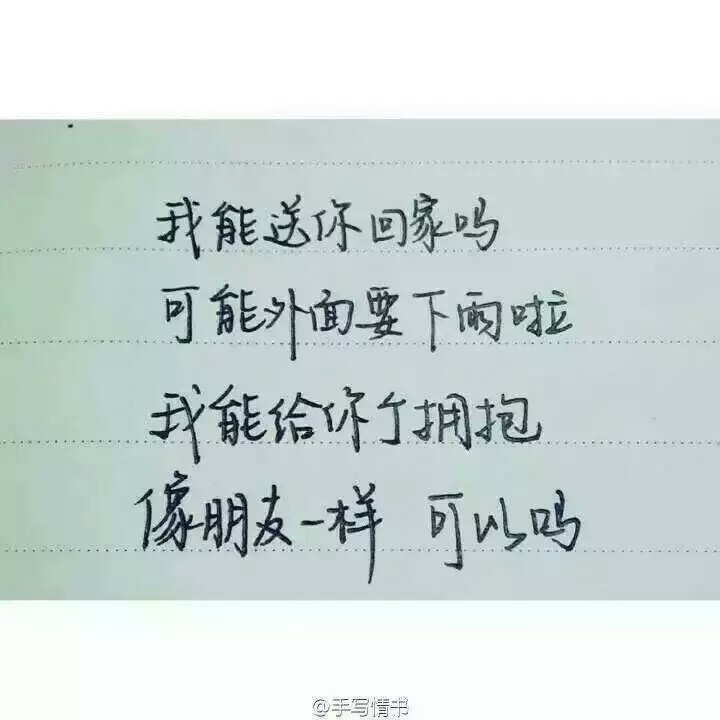 我能送你回家吗
可能外面要下雨啦
我能给你个拥抱
像朋友一样 可以吗
@手写情书